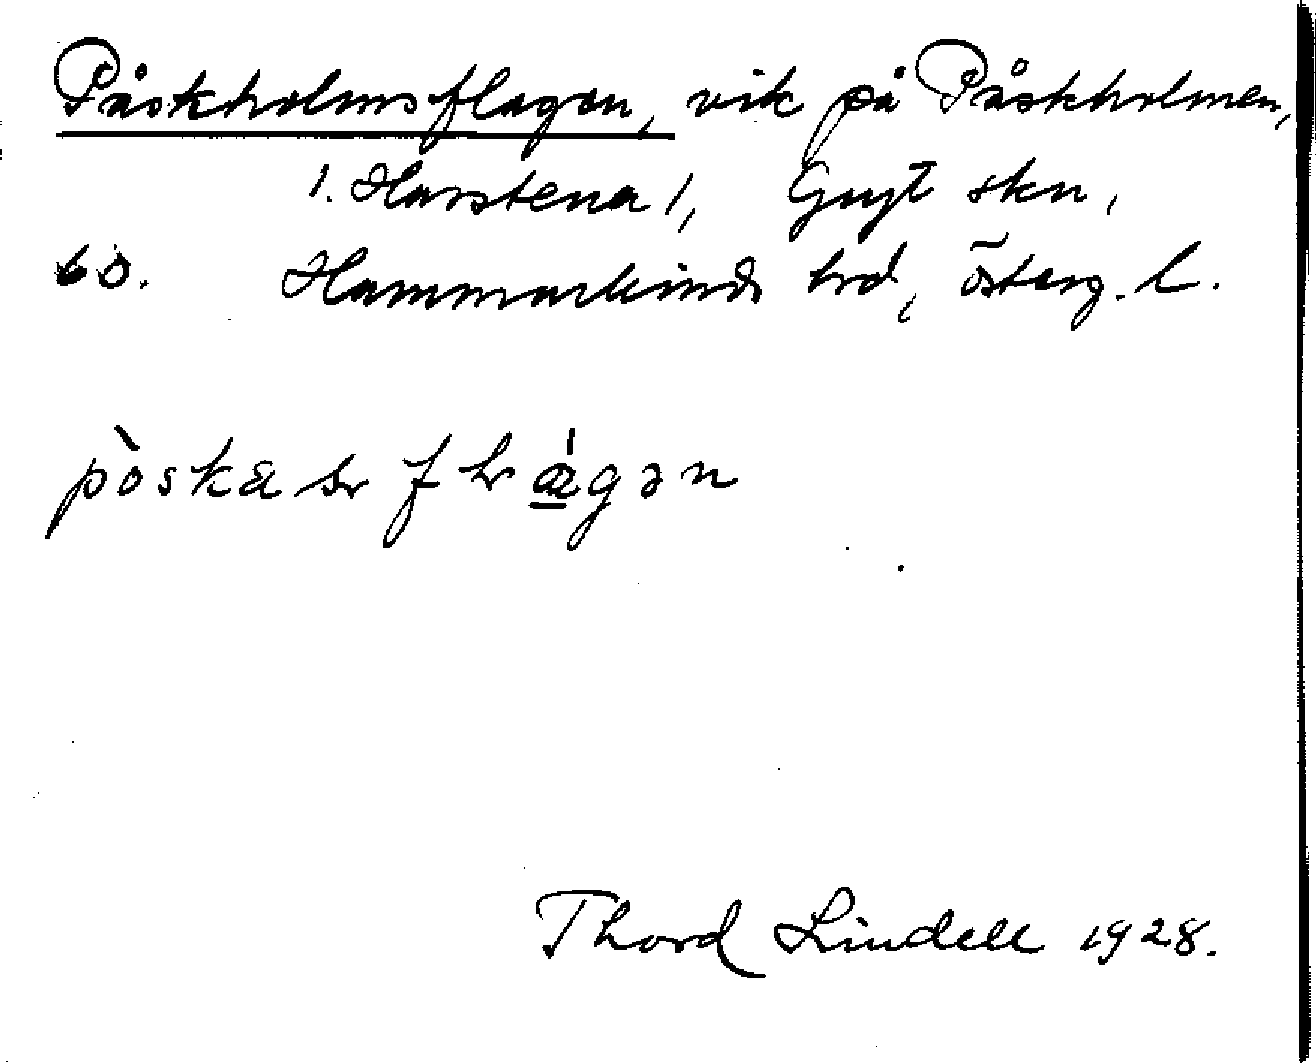 Påskholmsflagen, vik på Påskholmen,
1. Harstena 1, Gryt skn,
60. Hammarkinds hrd, Österg. l.
Thord Lindell 1928.